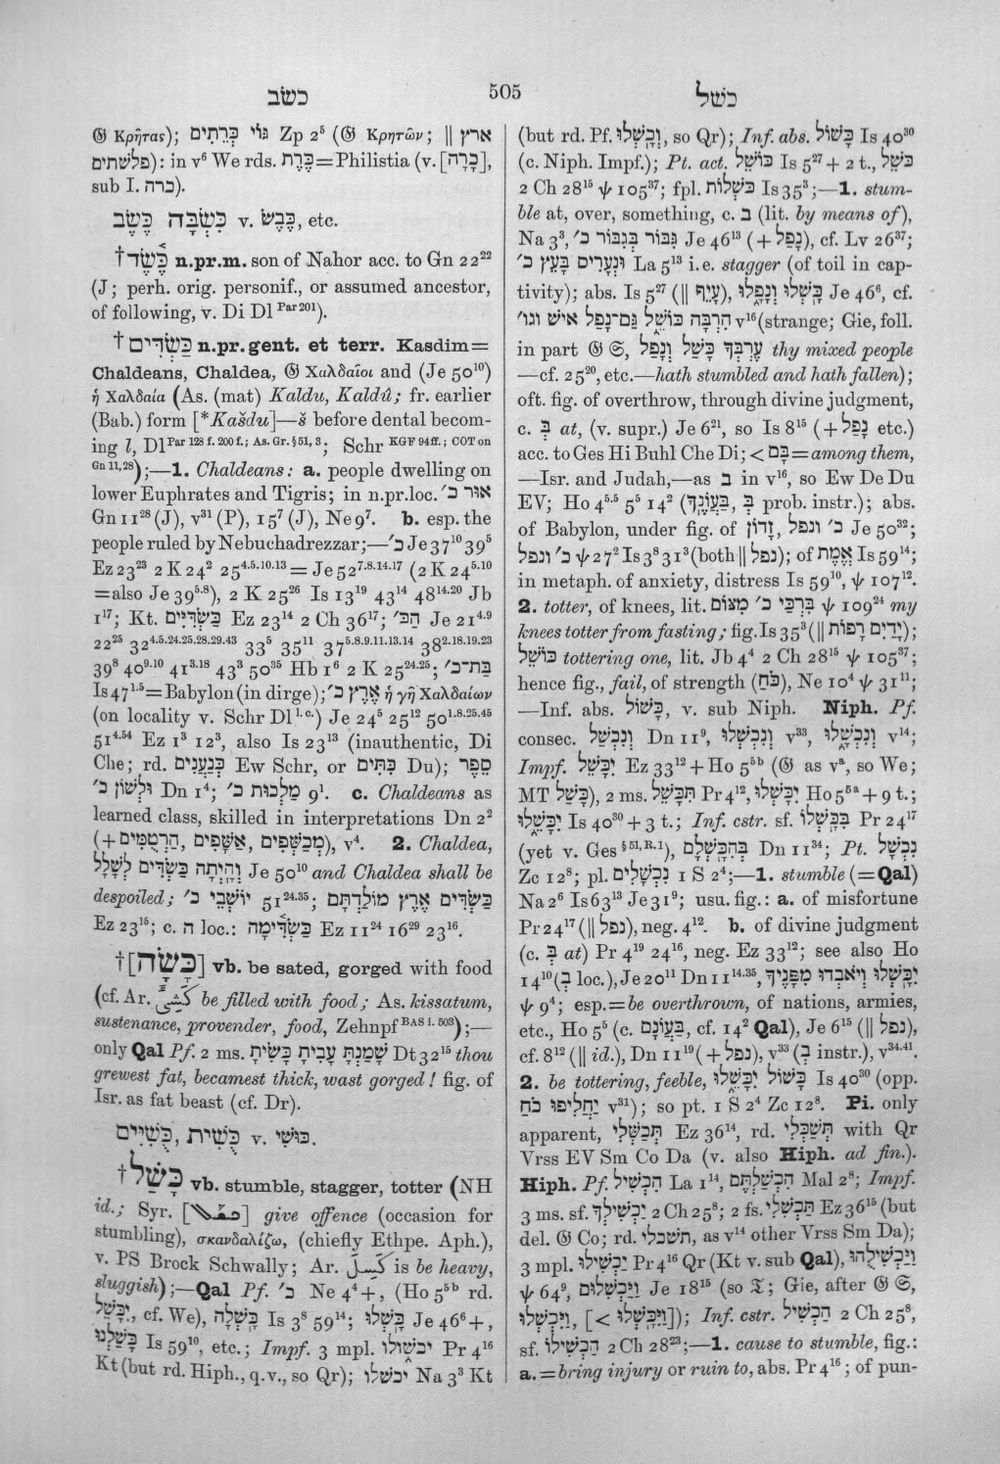 כשׂב
505
כשׁל
𝔊 Κρῆτας); גּוֹי כְּרֵתִים Zp 2⁵ (𝔊 Κρητῶν; ‖ ארץ
פלשׁתים): in v⁶ We rds. כְּרֶת=Philistia (v. [כָּרָה],
sub I. כרה).
כֶּשֶׂב כִּשְׂבָּה v. כֶּבֶשׂ, etc.
†כֶּ֫שֶׂד n.pr.m. son of Nahor acc. to Gn 22²²
(J; perh. orig. personif., or assumed ancestor,
of following, v. Di Dl Par 201).
†כַּשְׂדִּים n.pr.gent. et terr. Kasdim=
Chaldeans, Chaldea, 𝔊 Χαλδαῖοι and (Je 50¹⁰)
ἡ Χαλδαία (As. (mat) Kaldu, Kaldû; fr. earlier
(Bab.) form [*Kašdu]—š before dental becom-
ing l, Dl Par 128 f. 200 f.; As. Gr. § 51, 3; Schr KGF 94 ff.; COT on
Gn 11, 28);—1. Chaldeans: a. people dwelling on
lower Euphrates and Tigris; in n.pr.loc. אוּר כ׳
Gn 11²⁸ (J), v³¹ (P), 15⁷ (J), Ne 9⁷. b. esp. the
people ruled by Nebuchadrezzar;—כ׳ Je 37¹⁰ 39⁵
Ez 23²³ 2 K 24² 25⁴·⁵·¹⁰·¹³ = Je 52⁷·⁸·¹⁴·¹⁷ (2 K 24⁵·¹⁰
=also Je 39⁵·⁸), 2 K 25²⁶ Is 13¹⁹ 43¹⁴ 48¹⁴·²⁰ Jb
1¹⁷; Kt. כַּשְׂדִּיִּים Ez 23¹⁴ 2 Ch 36¹⁷; הַכּ׳ Je 21⁴·⁹
22²⁵ 32⁴·⁵·²⁴·²⁵·²⁸·²⁹·⁴³ 33⁵ 35¹¹ 37⁵·⁸·⁹·¹¹·¹³·¹⁴ 38²·¹⁸·¹⁹·²³
39⁸ 40⁹·¹⁰ 41³·¹⁸ 43³ 50³⁵ Hb 1⁶ 2 K 25²⁴·²⁵; בַּת־כ׳
Is 47¹·⁵=Babylon (in dirge); אֶרֶץ כ׳ ἡ γῆ Χαλδαίων
(on locality v. Schr Dl l.c.) Je 24⁵ 25¹² 50¹·⁸·²⁵·⁴⁵
51⁴·⁵⁴ Ez 1³ 12³, also Is 23¹³ (inauthentic, Di
Che; rd. כְּנַעֲנִים Ew Schr, or כִּתִּים Du); סֵפֶר
וּלְשׁוֹן כ׳ Dn 1⁴; מַלְכוּת כ׳ 9¹. c. Chaldeans as
learned class, skilled in interpretations Dn 2²
(+מְכַשְּׁפִים, אַשָּׁפִים, חַרְטֻמִּים), v⁴. 2. Chaldea,
וְהָיְתָה כַשְׂדִּים לְשָׁלָל Je 50¹⁰ and Chaldea shall be
despoiled; יוֹשְׁבֵי כ׳ 51²⁴·³⁵; כַּשְׂדִּים אֶרֶץ מוֹלַדְתָּם
Ez 23¹⁵; c. ה loc.: כַּשְׂדִּ֫ימָה Ez 11²⁴ 16²⁹ 23¹⁶.
†[כָּשָׂה] vb. be sated, gorged with food
(cf. Ar. be filled with food; As. kissatum,
sustenance, provender, food, Zehnpf BAS i. 503);—
only Qal Pf. 2 ms. שָׁמַנְתָּ עָבִיתָ כָּשִׂיתָ Dt 32¹⁵ thou
grewest fat, becamest thick, wast gorged! fig. of
Isr. as fat beast (cf. Dr).
כֻּשִׁית, כֻּשִׁיִּים v. כּוּשִׁי.
†כָּשַׁל vb. stumble, stagger, totter (NH
id.; Syr. give offence (occasion for
stumbling), σκανδαλίζω, (chiefly Ethpe. Aph.),
v. PS Brock Schwally; Ar. كَسِلَ is be heavy,
sluggish);—Qal Pf. כ׳ Ne 4⁴+, (Ho 5⁵ᵇ rd.
יִכָּשֵׁל, cf. We), כָּשְׁלָה Is 3⁸ 59¹⁴; כָּשְׁלוּ Je 46⁶+,
כָּשַׁלְנוּ Is 59¹⁰, etc.; Impf. 3 mpl. יכשׁולו Pr 4¹⁶
Kt (but rd. Hiph., q.v., so Qr); יכשׁלו Na 3³ Kt
(but rd. Pf. וְכָשְׁלוּ, so Qr); Inf. abs. כָּשׁוֹל Is 40³⁰
(c. Niph. Impf.); Pt. act. כּוֹשֵׁל Is 5²⁷ + 2 t., כֹּשֵׁל
2 Ch 28¹⁵ ψ 105³⁷; fpl. כֹּשְׁלוֹת Is 35³;—1. stum-
ble at, over, something, c. ב (lit. by means of),
Na 3³, גִּבּוֹר בְּגִבּוֹר כ׳ Je 46¹³ (+נָפַל), cf. Lv 26³⁷;
וּנְעָרִים בָּעֵץ כ׳ La 5¹³ i.e. stagger (of toil in cap-
tivity); abs. Is 5²⁷ (‖ עָיֵף), כָּשְׁלוּ וְנָפָלוּ Je 46⁶, cf.
הִרְבָּה כּוֹשֵׁל גַּם־נָפַל אישׁ וגו׳ v¹⁶ (strange; Gie, foll.
in part 𝔊 𝔖, עֶרְבְּךָ כָּשַׁל וְנָפַל thy mixed people
—cf. 25²⁰, etc.—hath stumbled and hath fallen);
oft. fig. of overthrow, through divine judgment,
c. בְּ at, (v. supr.) Je 6²¹, so Is 8¹⁵ (+נָפַל etc.)
acc. to Ges Hi Buhl Che Di; < בָּם=among them,
—Isr. and Judah,—as ב in v¹⁶, so Ew De Du
EV; Ho 4⁵·⁵ 5⁵ 14² (בַּעֲוֹנֶךָ, בְּ prob. instr.); abs.
of Babylon, under fig. of זָדוֹן, כ׳ ונפל Je 50³²;
כ׳ ונפל ψ 27² Is 3⁸ 31³ (both ‖ נפל); of אֱמֶת Is 59¹⁴;
in metaph. of anxiety, distress Is 59¹⁰, ψ 107¹².
2. totter, of knees, lit. בִּרְכַּי כ׳ מִצּוֹם ψ 109²⁴ my
knees totter from fasting; fig. Is 35³ (‖ יָדַיִם רָפוֹת);
כּוֹשֵׁל tottering one, lit. Jb 4⁴ 2 Ch 28¹⁵ ψ 105³⁷;
hence fig., fail, of strength (כֹּחַ), Ne 10⁴ ψ 31¹¹;
—Inf. abs. כָּשׁוֹל, v. sub Niph. Niph. Pf.
consec. וְנִכְשַׁל Dn 11⁹, וְנִכְשְׁלוּ v³³, וְנִכְשָׁלוּ v¹⁴;
Impf. יִכָּשֵׁל Ez 33¹² + Ho 5⁵ᵇ (𝔊 as vᵃ, so We;
MT כָּשַׁל), 2 ms. תִּכָּשֵׁל Pr 4¹², יִכָּשְׁלוּ Ho 5⁵ᵃ + 9 t.;
יִכָּשֵׁלוּ Is 40³⁰ + 3 t.; Inf. cstr. sf. בִּכָּשְׁלוֹ Pr 24¹⁷
(yet v. Ges § 51, R. 1), בְּהִכָּשְׁלָם Dn 11³⁴; Pt. נִכְשָׁל
Zc 12⁸; pl. נִכְשָׁלִים 1 S 2⁴;—1. stumble (=Qal)
Na 2⁶ Is 63¹³ Je 31⁹; usu. fig.: a. of misfortune
Pr 24¹⁷ (‖ נפל), neg. 4¹². b. of divine judgment
(c. בְּ at) Pr 4¹⁹ 24¹⁶, neg. Ez 33¹²; see also Ho
14¹⁰ (בְּ loc.), Je 20¹¹ Dn 11¹⁴·³⁵, יִכָּשְׁלוּ וְיֹאבְדוּ מִפָּנֶיךָ
ψ 9⁴; esp.=be overthrown, of nations, armies,
etc., Ho 5⁵ (c. בַּעֲוֹנָם, cf. 14² Qal), Je 6¹⁵ (‖ נפל),
cf. 8¹² (‖ id.), Dn 11¹⁹ (+נפל), v³³ (בְּ instr.), v³⁴·⁴¹.
2. be tottering, feeble, כָּשׁוֹל יִכָּשֵׁלוּ Is 40³⁰ (opp.
יַחֲלִיפוּ כֹחַ v³¹); so pt. 1 S 2⁴ Zc 12⁸. Pi. only
apparent, תְּכַשְּׁלִי Ez 36¹⁴, rd. תְּשַׁכְּלִי with Qr
Vrss EV Sm Co Da (v. also Hiph. ad fin.).
Hiph. Pf. הִכְשִׁיל La 1¹⁴, הִכְשַׁלְתֶּם Mal 2⁸; Impf.
3 ms. sf. יַכְשִׁילְךָ 2 Ch 25⁸; 2 fs. תַּכְשִׁלִי Ez 36¹⁵ (but
del. 𝔊 Co; rd. תשׁכלי, as v¹⁴ other Vrss Sm Da);
3 mpl. יַכְשִׁילוּ Pr 4¹⁶ Qr (Kt v. sub Qal), וַיַּכְשִׁילֻהוּ
ψ 64⁹, וַיַּכְשִׁלוּם Je 18¹⁵ (so 𝔗; Gie, after 𝔊 𝔖,
וַיַּכְשִׁלוּ, [< וַיִּכָּשְׁלוּ]); Inf. cstr. הַכְשִׁיל 2 Ch 25⁸,
sf. הַכְשִׁילוֹ 2 Ch 28²³;—1. cause to stumble, fig.:
a.=bring injury or ruin to, abs. Pr 4¹⁶; of pun-